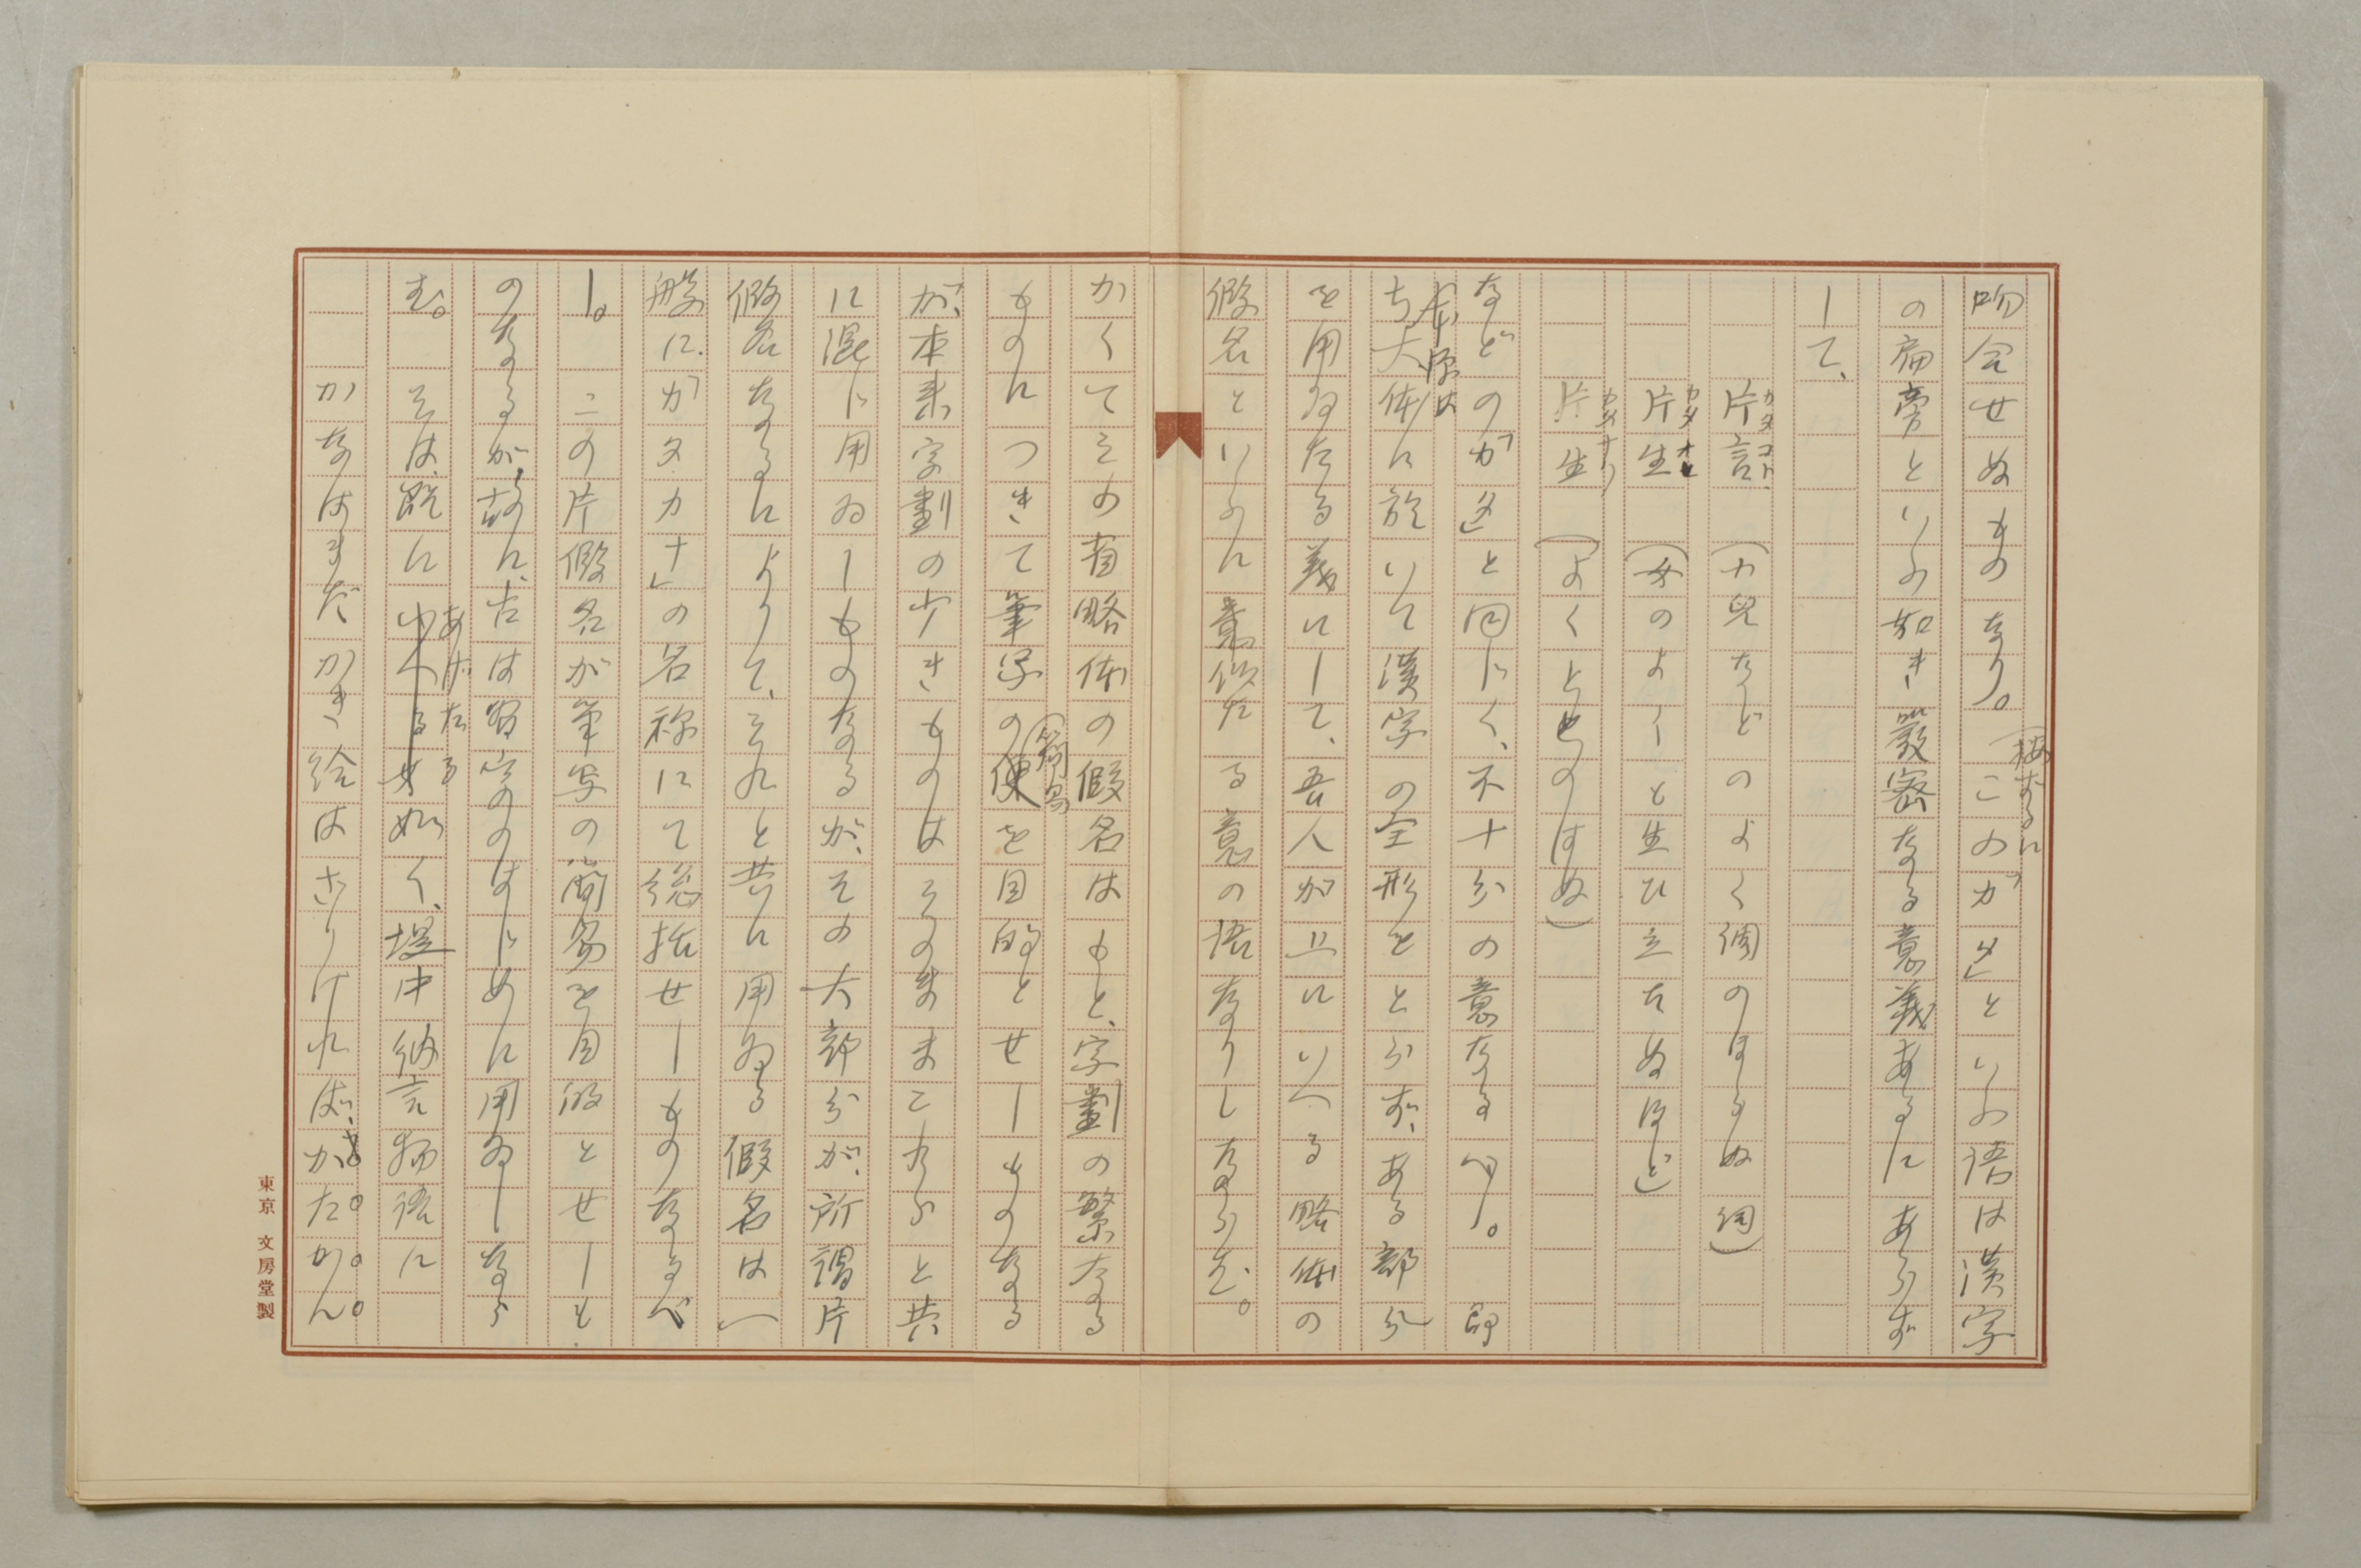 吻合せぬものなり。このカタ」といふ語は漢字
按ずるに
の扁旁といふ如き嚴密なる意義あるにあらず
して、
片言（小兒などのよく調のほらぬ詞）
カタコト
片生（女のよーと生ひ立たぬほど）
カタオヒ
片生（よくとゝのはぬ）
カタナリ
などのカタ」と同じく、不十分の意なるべし。 即
ち大体に於いて漢字の全形をとらず、ある部分
本源は
を用ゐたる義にして、吾人が上にいへる略体の
假名といふに意似たる意の語なりしならむ。
かくてその省略体の假名はもと、字劃の繁なる
ものにつきて筆写の便を目的とせしものなる
簡易
が、本來字劃の少きものはそのまゝこれらと共
に混じ用ゐしものなるが、その大部分が、所謂片
假名なるによりて、それと共に用ゐる假名は一
般に「カタカナ」の名称にて総括せしものなるべ
し。 この片假名が筆写の簡易を目的とせしも
のなるが故に、古は習字のはじめに用ゐしなら
む。 そは既にいへる如く、堤中納言物語に
あげたる
かなはまだかき給はざりければ、かたかん